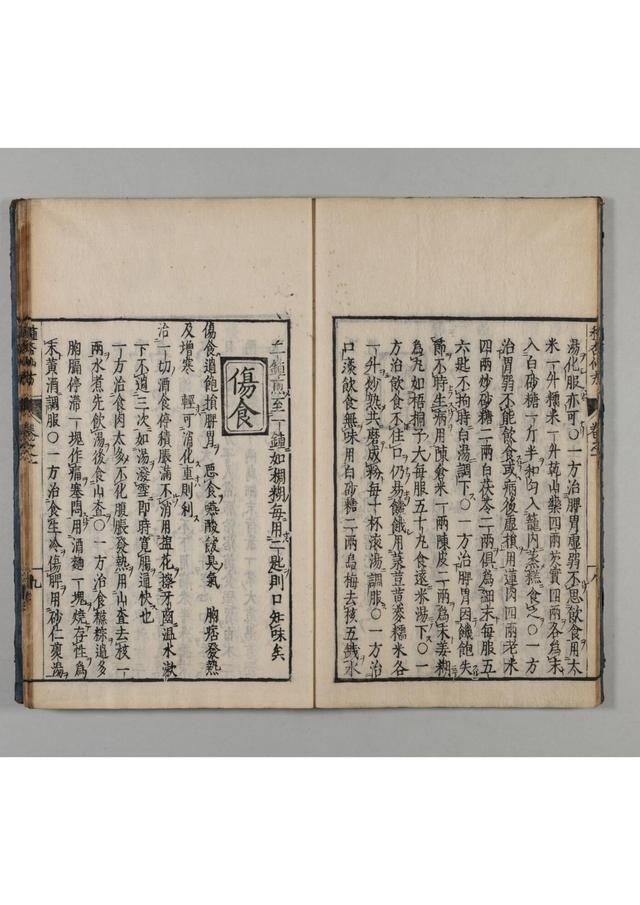 湯化服亦可〇一方治脾胃虛弱不思飲食用大
米一升糯米一升乾山藥四兩芡實四兩各為末
入白砂糖一斤半和勻入籠內蒸糕食之〇一方
治胃弱不能飲食或病後虛損用蓮肉四兩老米
四兩炒砂糖二兩白茯苓二兩俱為細末每服五
六匙不拘時白湯調下〇一方治脾胃因饑飽失
節不時生病用陳倉米一兩陳皮二兩為末姜糊
為丸如梧桐子大每服五十丸食遠米湯下〇一
方治飲食不住口仍易饑餓用菉豆苗麥糯米各
一升炒熟共磨成粉每十杯滾湯調服〇一方治
口淡飲食無味用白砂糖二兩烏梅去核五錢水
二鍾煎至一鍾如稠糊每用二匙則口知味矣
傷食
傷食過飽損脾胃 惡食噯酸敗臭氣 胸痞發熱
及增寒 輕可消化重則利
治一切酒食停積脹滿不消用鹽花擦牙齒溫水漱
下不過三次如湯潑雪即時寬腸通快也
一方治食肉太多不化腹脹發熱用山查去核一
兩水煮先飲湯後食山查〇一方治食糕粽過多
胸膈停滯一塊作痛寒悶用酒麯一塊燒存性為
末黃酒調服〇一方治食生冷傷脾用砂仁煎湯